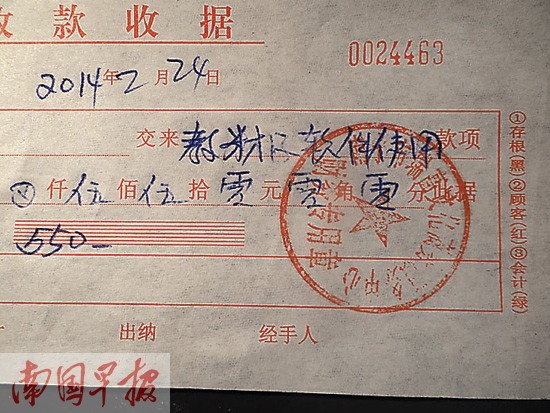 收款收据
0024463
2014年2月24日
交来 教材及软件使用 款项
仟伍佰伍拾零元零角零分此据
550-
出纳 经手人
①存根(黑)②顾客(红)③会计(绿)
财务专用章
中心
南国早报